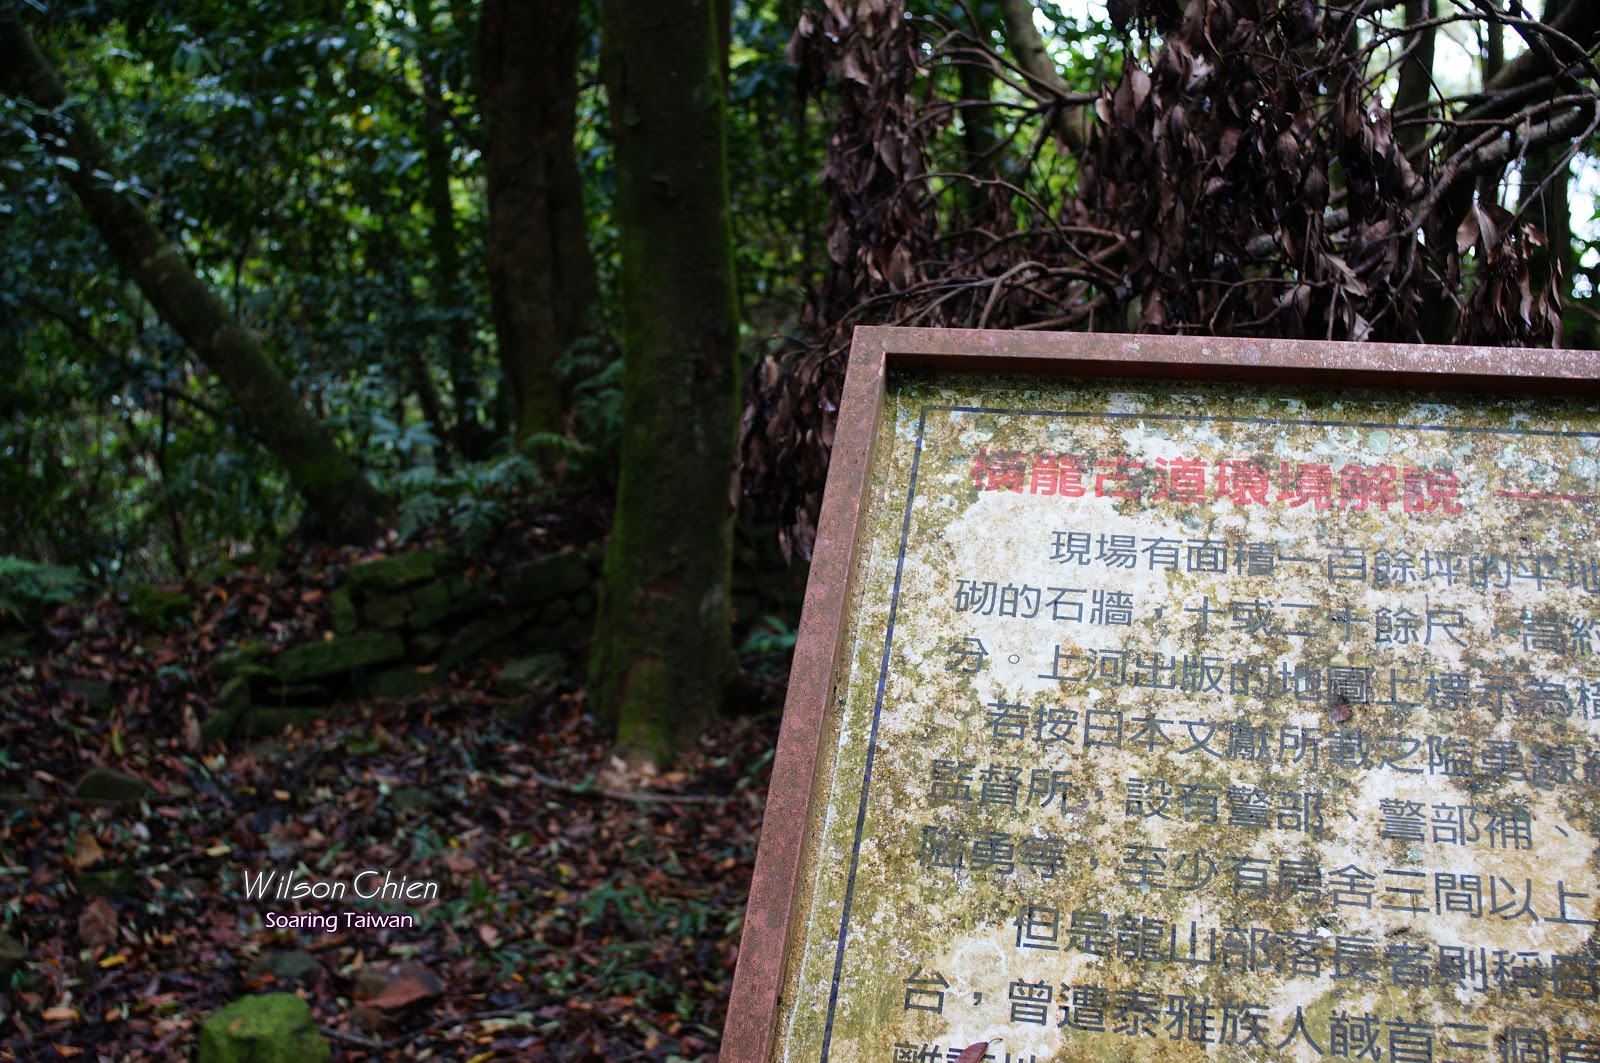 橫龍古道環境解說
現場有面積一百餘坪的平地
砌的石牆，十或二十餘尺，高約
分。上河出版的地圖上標示為橫
。若按日本文獻所載之隘勇線
監督所，設有警部、警部補、
隘勇等，至少有房舍三間以上
但是龍山部落長者則稱
台，曾遭泰雅族人馘首三個
Wilson Chien
Soaring Taiwan